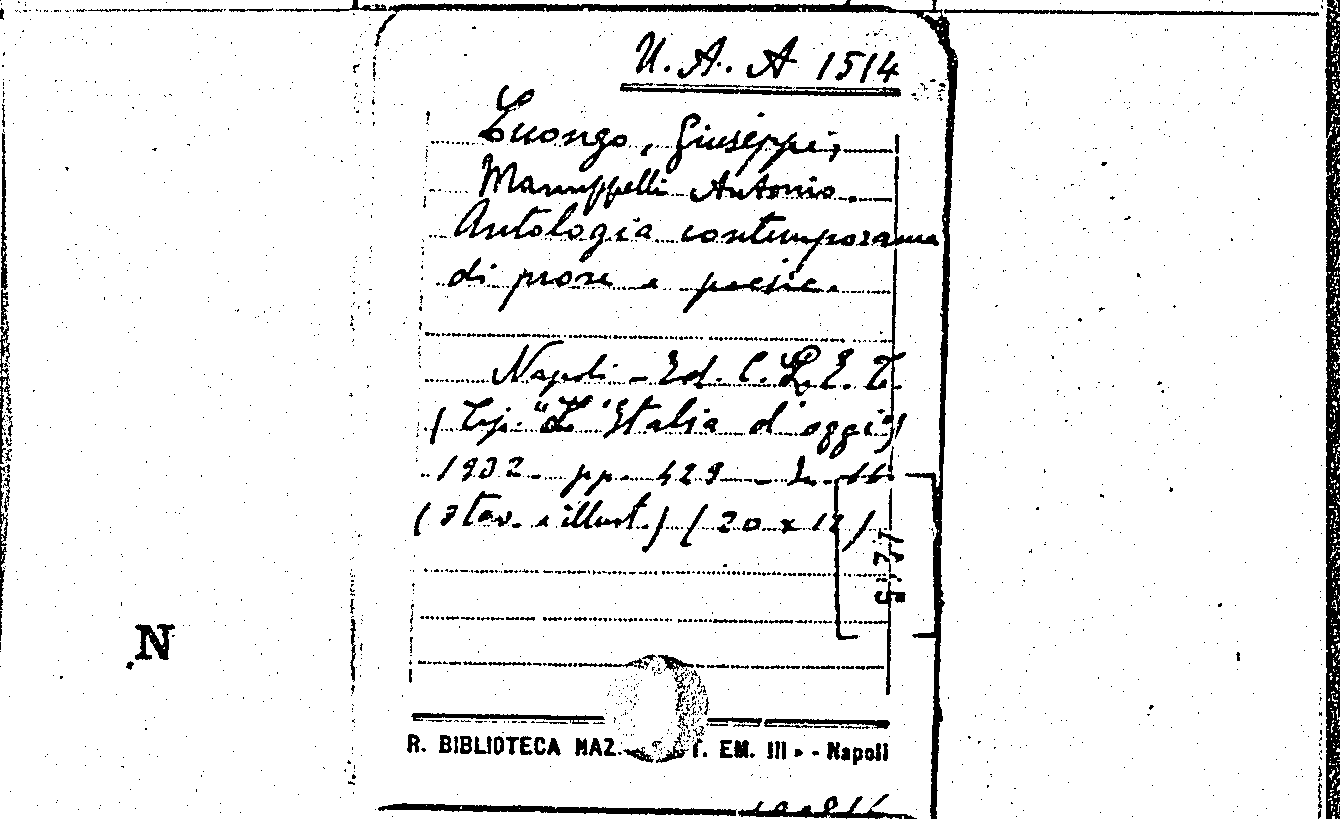 U. A. A 1514
Luongo, Giuseppe,
Manuppelli Antonio.
Antologia contemporanea
di prose e poesie.
Napoli - Ed. C. L. E. T.
(Tip. "L'Italia d'oggi")
1932 - pp. 429 - In-16
(3 tav. e illust.) (20 x 12)
5,77
N
R. BIBLIOTECA NAZ. T. EM. III » - Napoli